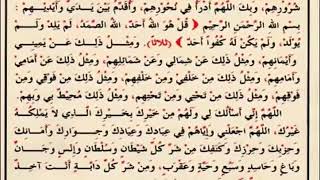 شُرُورِهِمْ، وَبِكَ اللَّهُمَّ أَدْرَأُ فِي نُحُورِهِمْ، وَأُقَدِّمُ بَيْنَ يَدَيَّ وَأَيْدِيهِمْ:
بِسْمِ اللهِ الرَّحْمَنِ الرَّحِيْمِ ﴿ قُلْ هُوَ اللهُ أَحَدٌ، اللهُ الصَّمَدُ، لَمْ يَلِدْ وَلَمْ
يُوْلَدْ، وَلَمْ يَكُنْ لَهُ كُفُوًا أَحَدٌ ﴾ (ثلاثا). وَمِثْلُ ذَلِكَ عَنْ يَمِينِي
وَأَيْمَانِهِمْ، وَمِثْلُ ذَلِكَ عَنْ شِمَالِي وَعَنْ شَمَائِلِهِمْ، وَمِثْلُ ذَلِكَ عَنْ أَمَامِي
وَأَمَامِهِمْ، وَمِثْلُ ذَلِكَ مِنْ خَلْفِي وَمِنْ خَلْفِهِمْ، وَمِثْلُ ذَلِكَ مِنْ فَوْقِي وَمِنْ
فَوْقِهِمْ، وَمِثْلُ ذَلِكَ مِنْ تَحْتِي وَمِنْ تَحْتِهِمْ، وَمِثْلُ ذَلِكَ مُحِيْطٌ بِي وَبِهِمْ.
اللَّهُمَّ إِنِّي أَسْأَلُكَ لِي وَلَهُمْ مِنْ خَيْرِكَ بِخَيْرِكَ الَّذِي لَا يَمْلِكُهُ
غَيْرُكَ. اللَّهُمَّ اجْعَلْنِي وَإِيَّاهُمْ فِي عِبَادِكَ وَعِيَاذِكَ وَجِوَارِكَ وَأَمَانَتِكَ
وَحِزْبِكَ وَحِرْزِكَ وَكَنَفِكَ، مِنْ شَرِّ كُلِّ شَيْطَانٍ وَسُلْطَانٍ وَإِنْسٍ وَجَانٍّ
وَبَاغٍ وَحَاسِدٍ وَسَبُعٍ وَحَيَّةٍ وَعَقْرَبٍ، وَمِنْ شَرِّ كُلِّ دَابَّةٍ أَنْتَ آخِذٌ